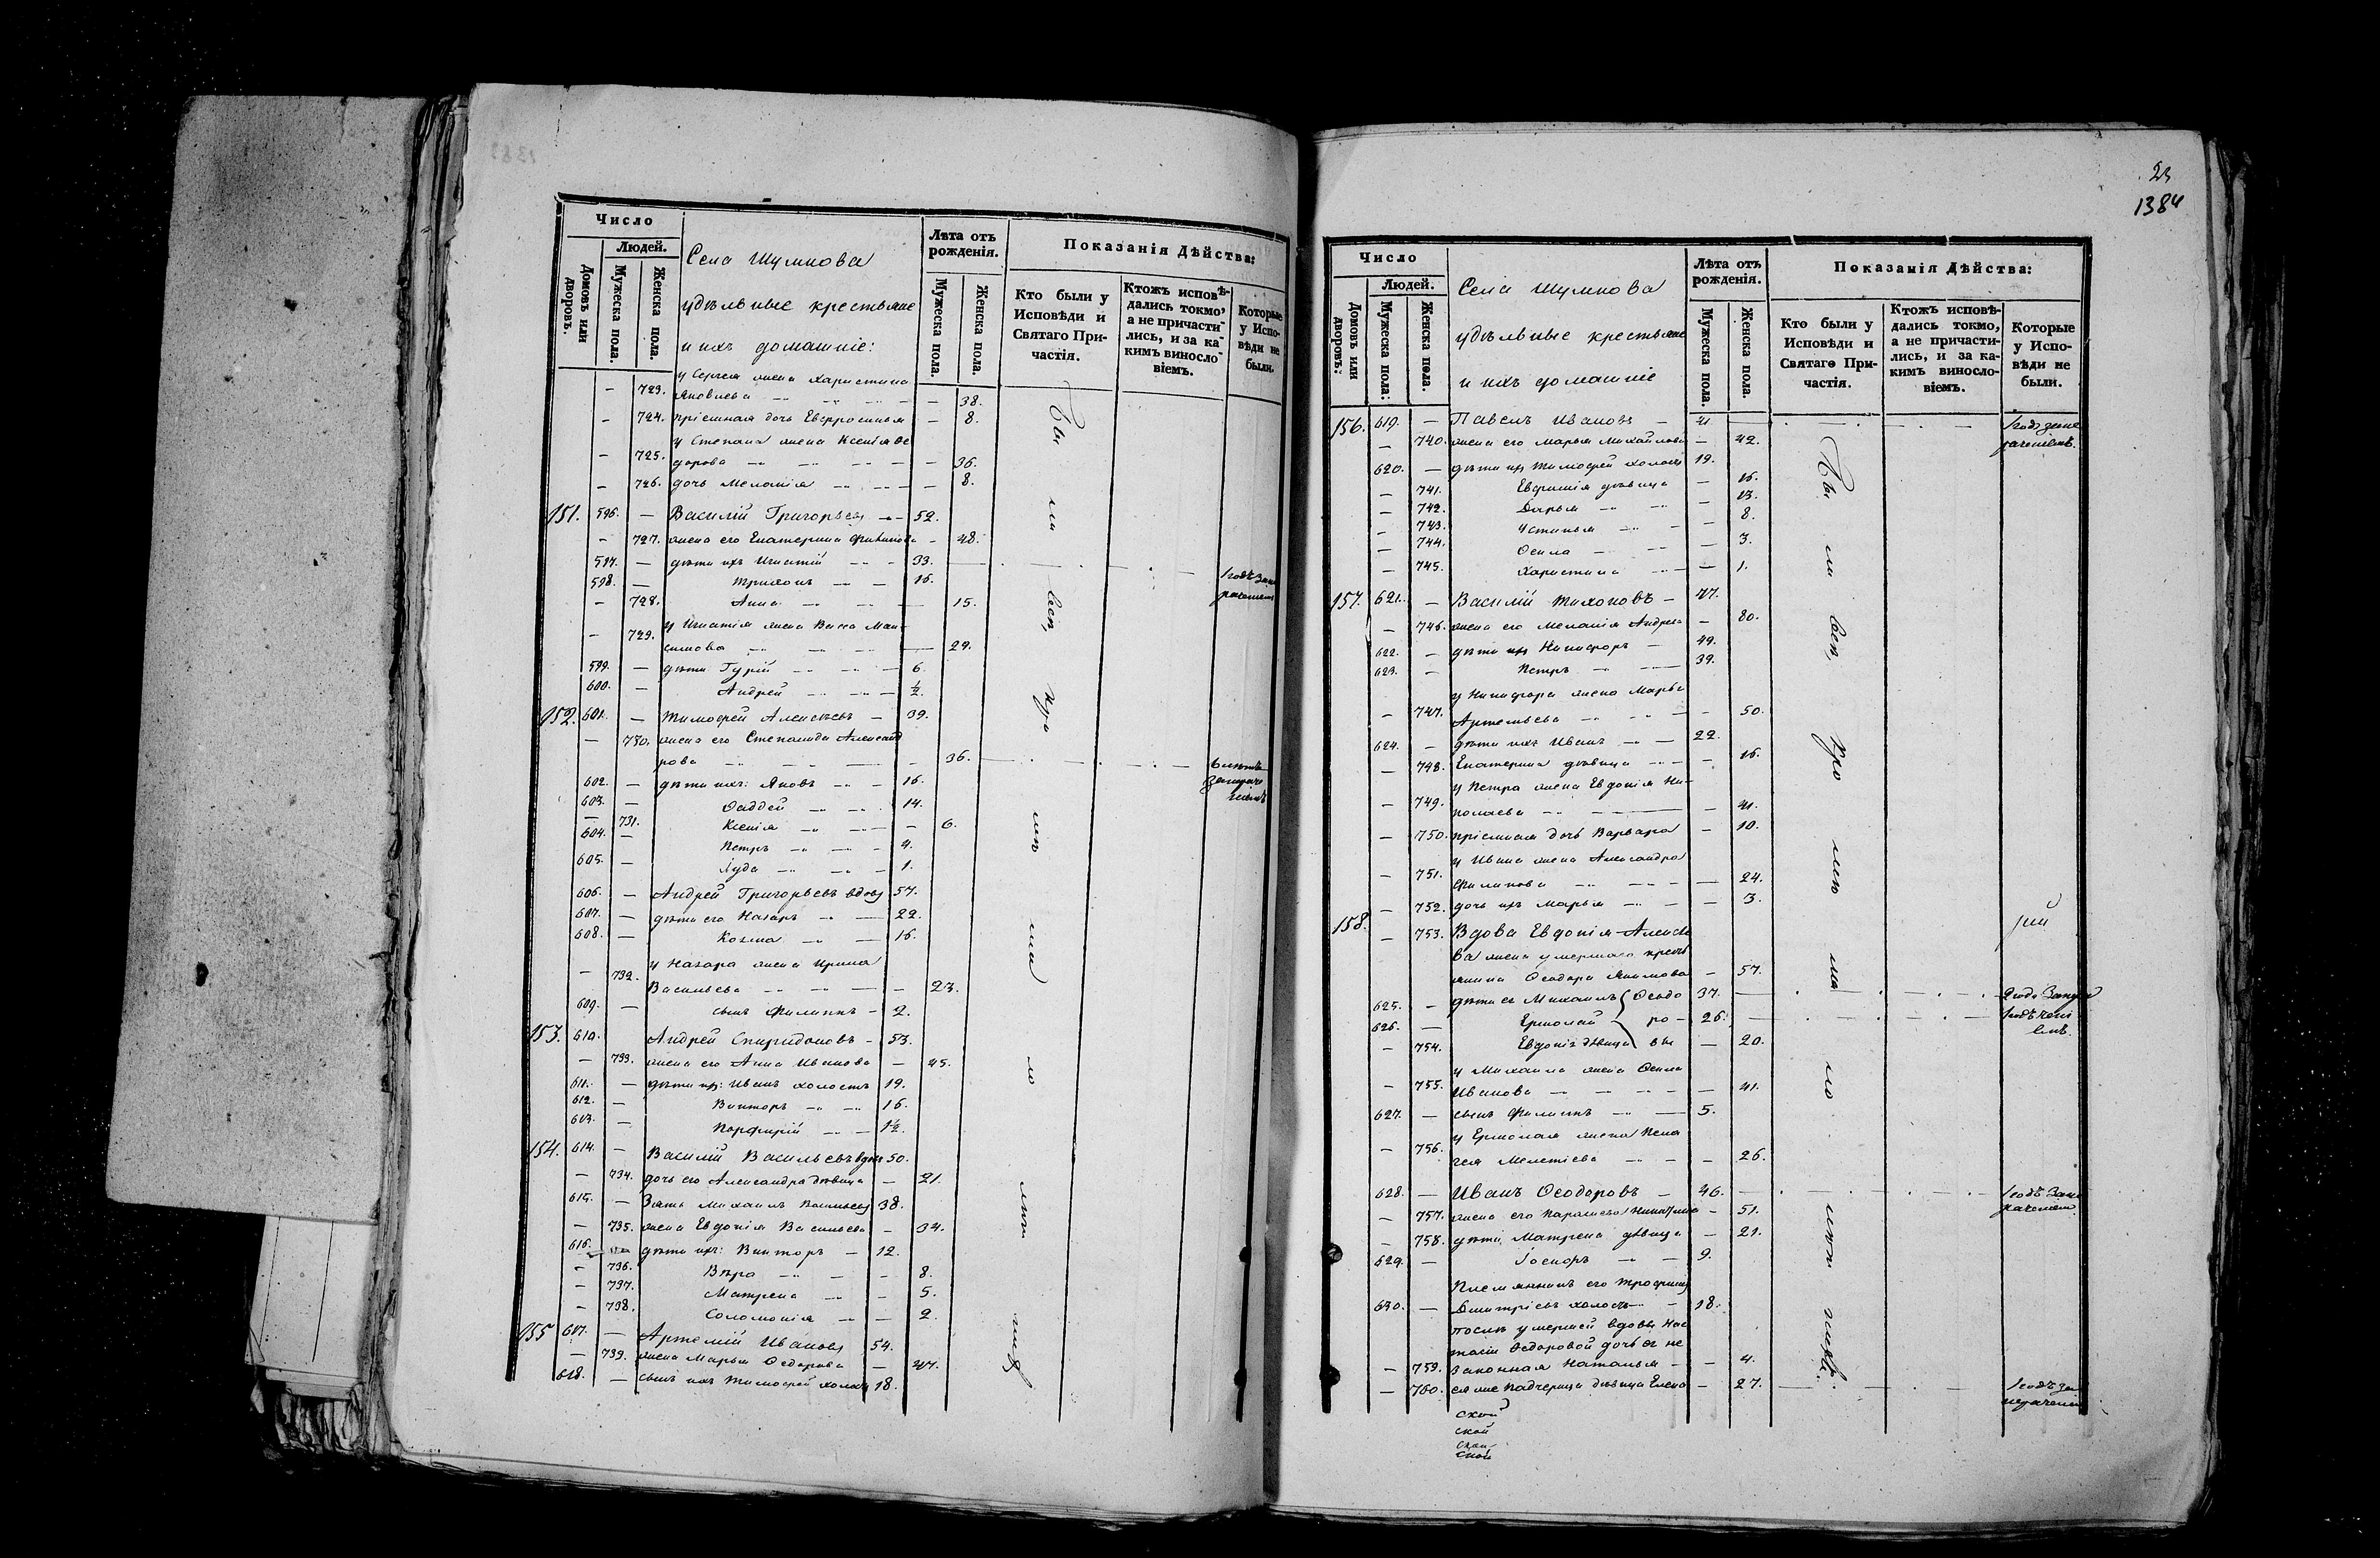 Число
Людей.
Домовъ или дворовъ.
Мужеска пола.
Женска пола.
Села Шумкова
удѣльные крестьяне
и ихъ домашніе:
Лѣта отъ рожденія.
Мужеска пола.
Женска пола.
Показанія Дѣйства:
Кто были у Исповѣди и Святаго Причастія.
Ктожъ исповѣдались токмо, а не причастились, и за какимъ винословіемъ.
Которые у Исповѣди не были.
у Сергея жена Харитина
– 723. Яковлева – 38.
– 724. пріемная дочь Евфросинья – 8.
у Степана жена Ксенія Ѳе
– 725. дорова – 36.
– 726. дочь Меланія – 8.
151. 596. – Василій Григорьевъ – 52.
– 727. жена его Екатерина Филипова – 48.
597. – дѣти ихъ Игнатій – 33.
598. – Трифонъ – 16.
– 728. Анна – 15.
у Игнатія жена Васса Мак-
– 729. симова – 29.
599. – дѣти Гурій – 6.
600. – Андрей – ½.
152. 601. – Тимофей Алексѣевъ – 39.
– 730. жена его Степанида Александ
рова – 36.
602. – дѣти ихъ: Яковъ – 16.
603. – Фаддей – 14.
– 731. Ксенія – 6.
604. – Петръ – 4.
605. – Іуда – 1.
606. – Андрей Григорьевъ вдовъ 57.
607. – дѣти его Назаръ – 22.
608. – Козма – 16.
у Назара жена Ирина
– 732. Васильева – 23.
609. – сынъ Филиппъ – 2.
153. 610. Андрей Спиридоновъ – 53.
– 733. жена его Анна Иванова – 45.
611. – дѣти их: Иванъ холостъ 19.
612. – Викторъ – 16.
613. – Порфирій – 1½.
154. 614. – Василій Васильевъ вдовъ 50.
– 734. дочь его Александра дѣвица – 21.
615. – Зять Михаилъ Васильевъ 38.
– 735. жена Евдокія Васильева – 34.
616. дѣти ихъ: Викторъ – 12.
– 736. Вѣра – 8.
– 737. Матрена – 5.
– 738. Соломонія – 2.
155 617. – Артемій Ивановъ 54.
– 739. жена Марья Ѳедорова – 47.
618. – сынъ ихъ Тимофей холостъ 18.
23
1384
Число
Людей.
Домовъ или дворовъ.
Мужеска пола.
Женска пола.
Села Шумкова
удѣльные крестьяне
и ихъ домашніе
Лѣта отъ рожденія.
Мужеска пола.
Женска пола.
Показанія Дѣйства:
Кто были у Исповѣди и Святаго Причастія.
Ктожъ исповѣдались токмо, а не причастились, и за какимъ винословіемъ.
Которые у Исповѣди не были.
156. 619. – Павелъ Ивановъ – 41
– 740. жена его Марья Михайлова – 42.
620. – дѣти их Тимофей холостъ 19.
– 741. Евфимія дѣвица – 16.
– 742. Дарья – 13.
– 743. Устинья – 8.
– 744. Фекла – 3.
– 745. Харитина – 1.
157. 621. – Василій Тихоновъ – 77.
– 746. жена его Меланія Андреева – 80.
622. – дѣти их Никифоръ – 49.
623. – Петръ – 39.
у Никифора жена Марья
– 747. Артемьева – 50.
624. – дѣти ихъ Иванъ – 22.
– 748. Екатерина дѣвица – 16.
у Петра жена Евдокія Ни-
– 749. колаева – 41.
– 750. пріемная дочь Варвара – 10.
у Ивана жена Александра
– 751. Филипова – 24.
– 752. дочь ихъ Марья – 3.
158. – 753. Вдова Евдокія Алексѣе
ва жена умершаго кресть
янина Ѳеодора Якимова – 57.
625. – дѣти ее Михаилъ Ѳеодо 37.
626. – Ермолай ро – 26.
– 754. Евдокія дѣвица вы – 20.
у Михаила жена Фекла
– 755. Иванова – 41.
627. – сынъ Филиппъ – 5.
у Ермолая жена Пела
– 756. гея Мелетіева – 26.
628. – Иванъ Ѳеодоровъ – 46.
– 757. жена его Параскева Никитина – 51.
– 758. дѣти Матрена дѣвица – 21.
629. – 9.
Племянникъ его Трофимъ
630. – Дмитріевъ холостъ – 18.
послѣ умершей вдовы Нас
тасіи Ѳедоровой дочь ея не
– 759. законная Наталья – 4.
– 760. ея же падчерица дѣвица Елена – 27.
ской
ской
ской
ской